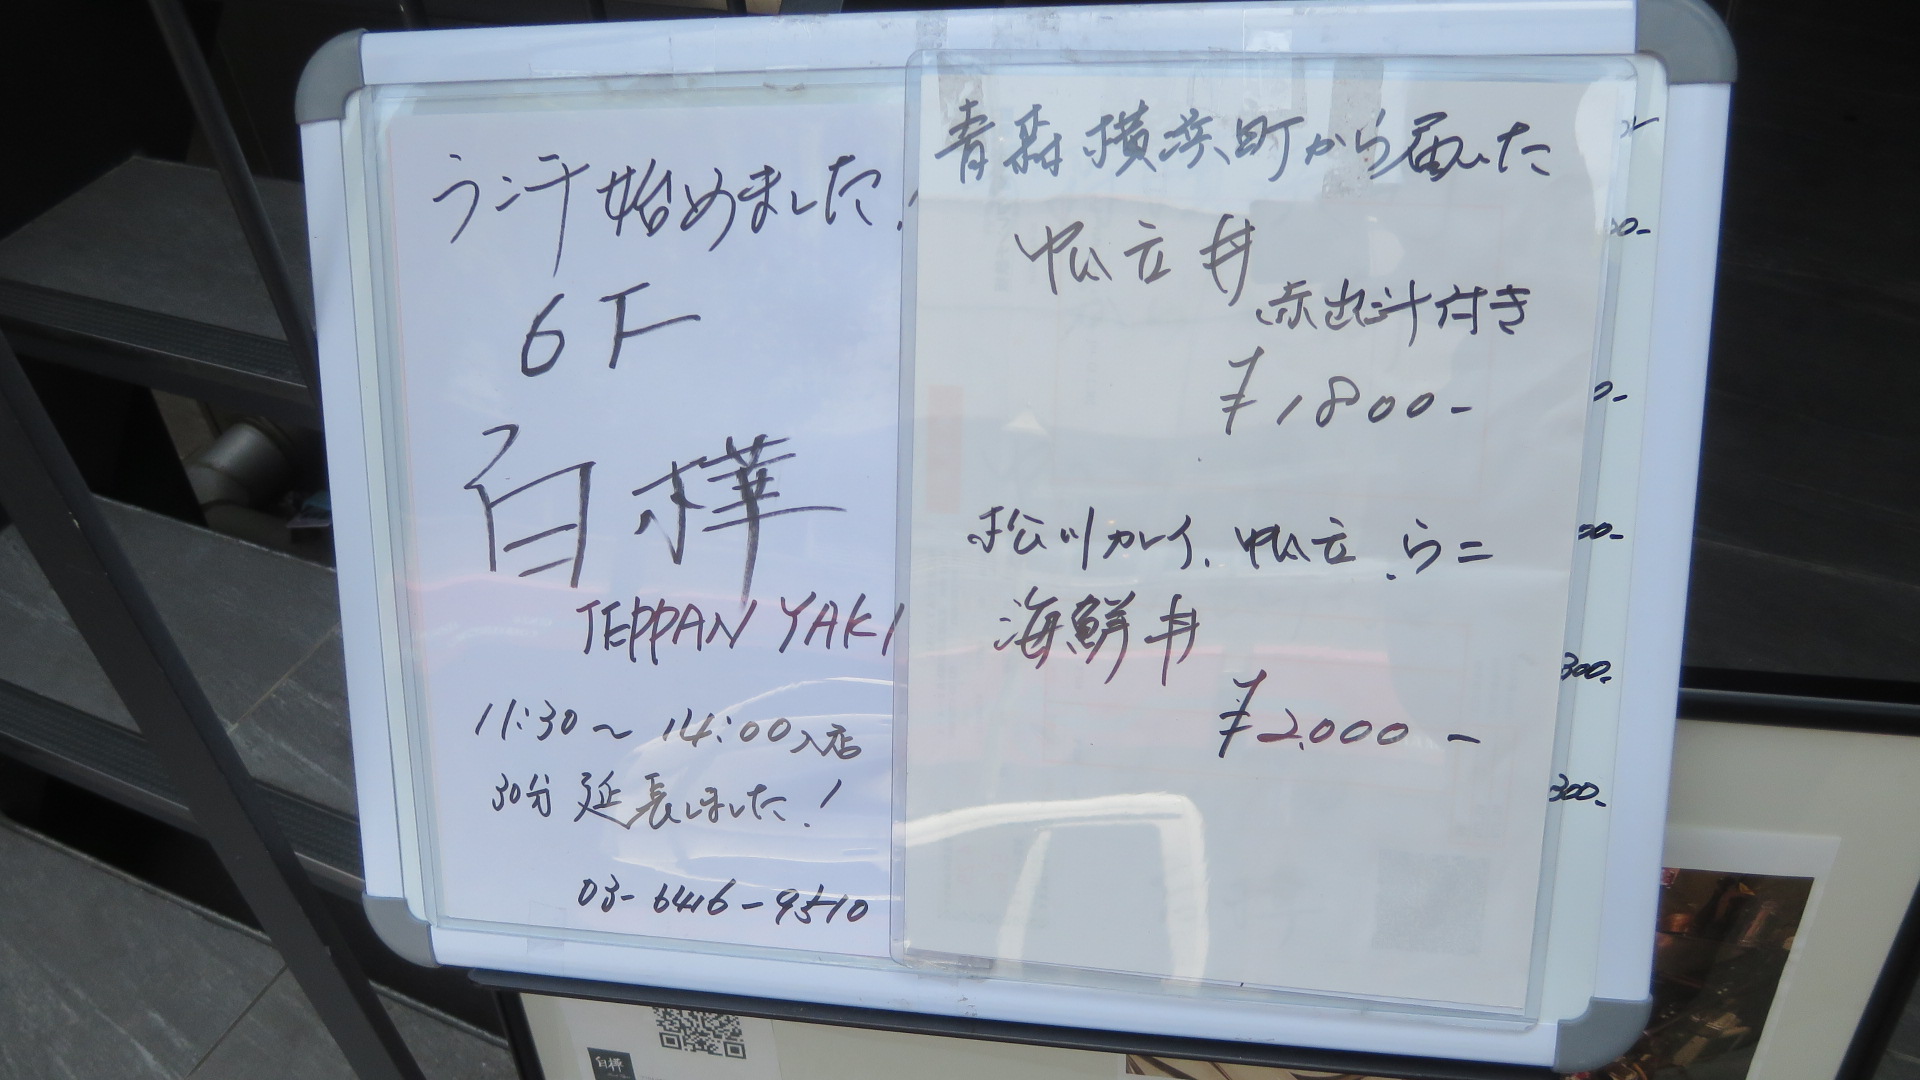 ランチ始めました!
6F
白樺
TEPPAN YAKI
11:30〜14:00入店
30分延長しました!
03-6416-9510
青森横浜町から届いた
帆立丼
赤出汁付き
¥1800-
松川カレイ、帆立、うに
海鮮丼
¥2,000-
00-
0-
00-
300-
300-
白樺